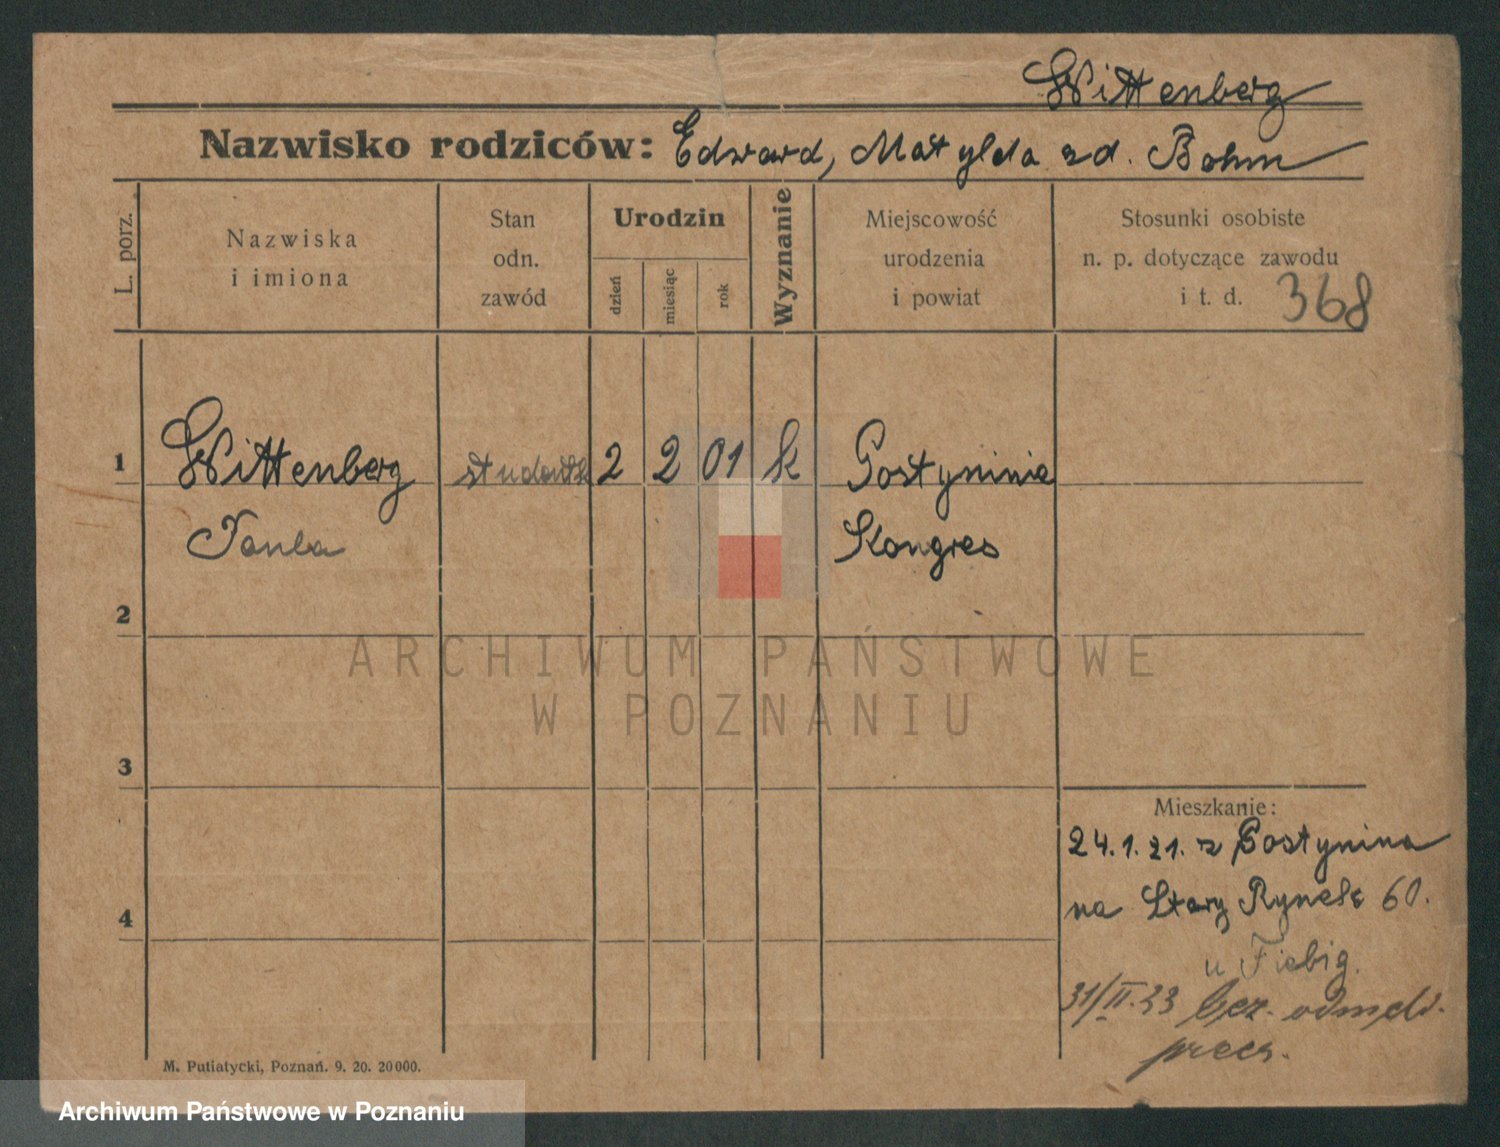 Wittenberg
Nazwisko rodziców: Edward, Matylda zd. Bohm
L. porz.
Nazwiska
i imiona
Stan
odn.
zawód
Urodzin
dzień
miesiąc
rok
Wyznanie
Miejscowość
urodzenia
i powiat
Stosunki osobiste
n. p. dotyczące zawodu
i t. d.
368
1
Wittenberg
studentk
2 2 01 k
Gostyninie
Kongres
2
ARCHIWUM PAŃSTWOWE
W POZNANIU
3
Mieszkanie:
24.1.21. z Gostynina
4
na Stary Rynek 60.
u Fiebig.
31/II.23 bez odmeld.
M. Putiatycki, Poznań. 9. 20. 20000.
Archiwum Państwowe w Poznaniu